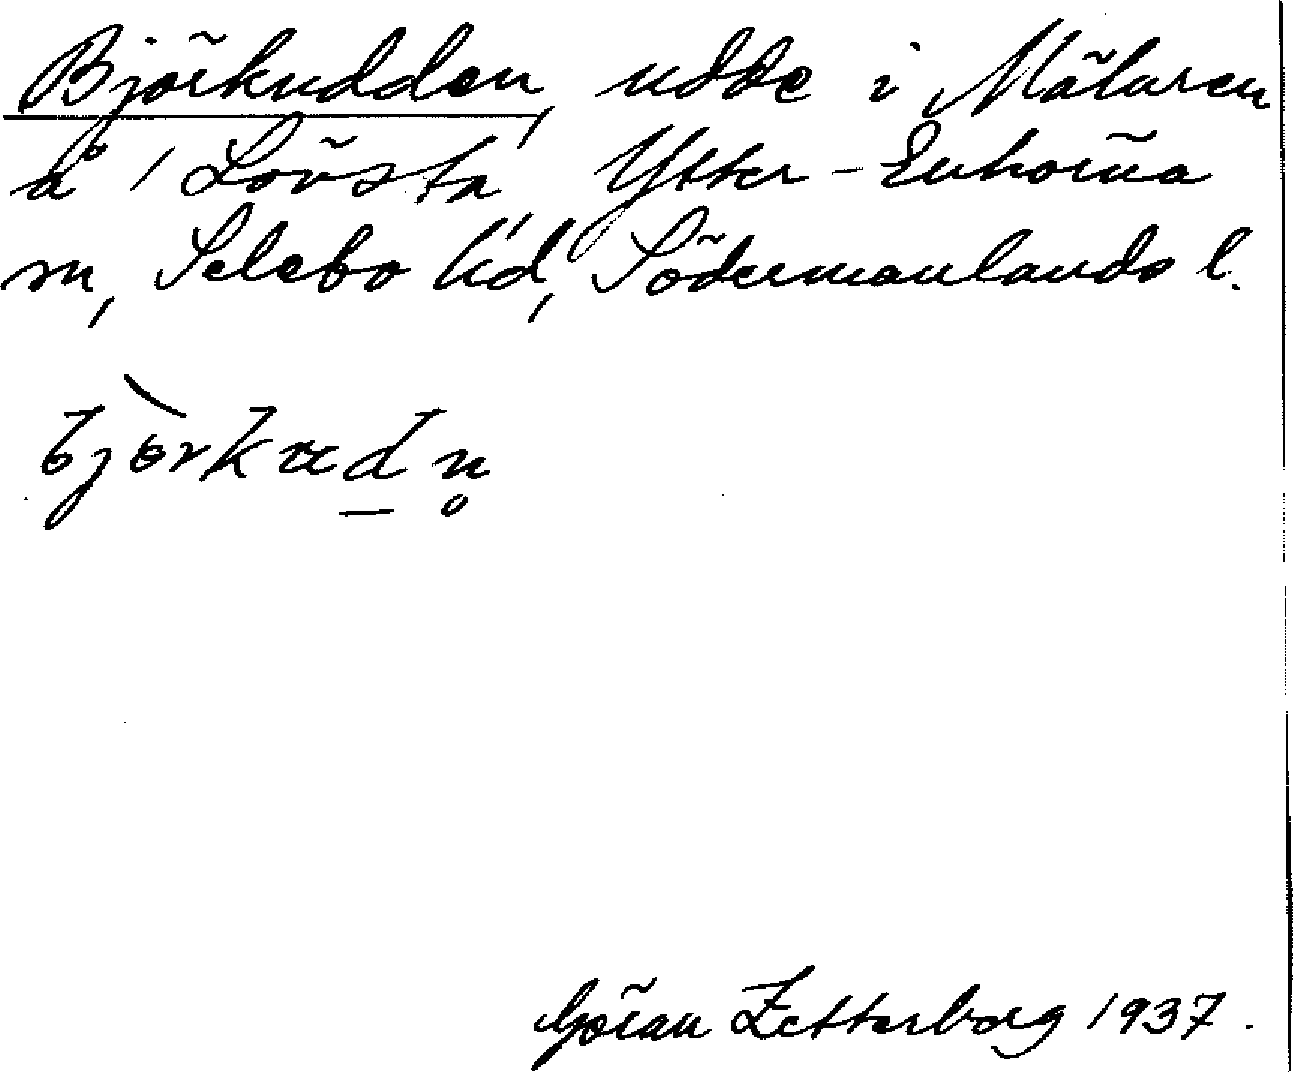 Björkudden, udde i Mälaren
å 1 Lövsta, Ytter-Enhörna
sn, Selebo hd, Södermanlands l.
björkudn
Göran Zetterborg 1937.